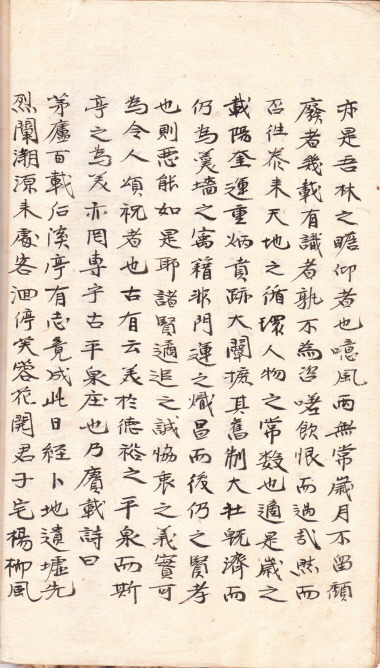 亦是吾林之瞻仰者也噫風雨無常歲月不留頹
廢者幾載有識者孰不為咨嗟飲恨而過哉然而
否往泰來天地之循環人物之常数也適是歲之
載陽奎運重炳賁跡大闡擴其舊制大壯旣濟而
仍為羹墻之寓籍非門運之熾昌而後仍之賢孝
也則惡能如是耶諸賢遹追之誠恊衷之義實可
為令人頌祝者也古有云美於德裕之平泉而斯
亭之為美亦罔專乎古平泉庄也乃賡載詩曰
茅廬百載后溪亭有志竟成此日經卜地遺墟先
烈闡溯源来處客洄停芙蓉花開君子宅楊柳風